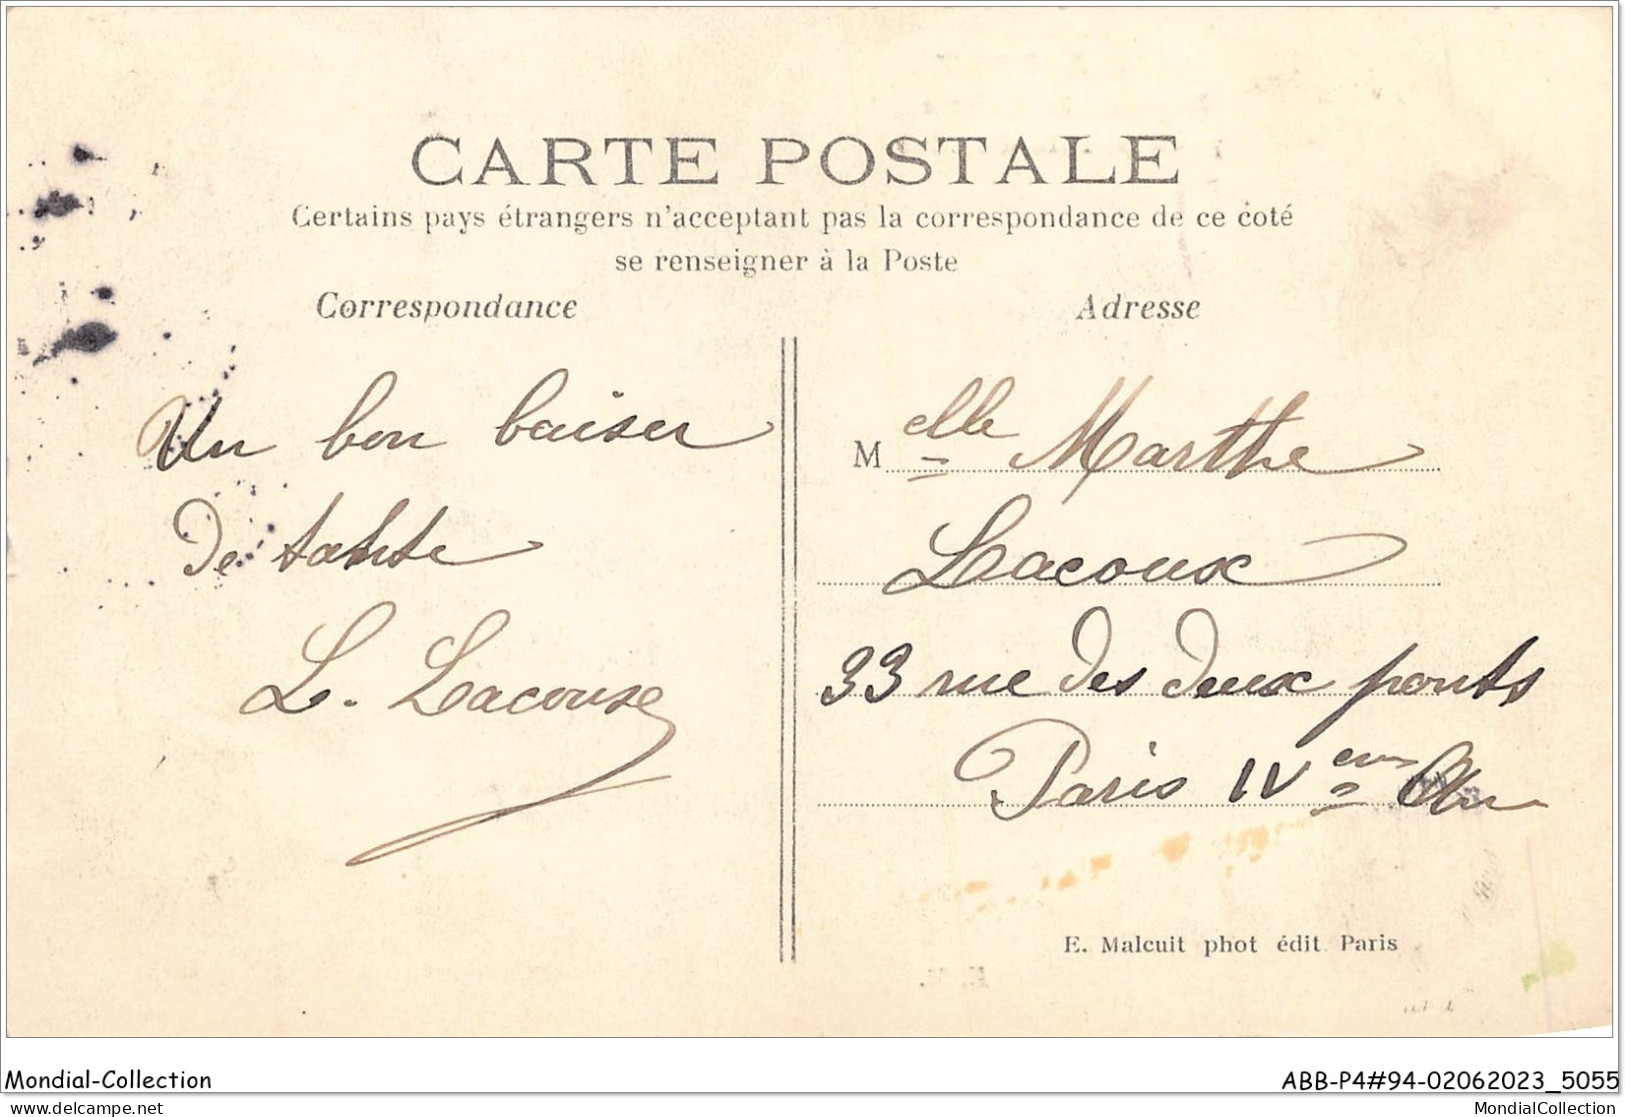 CARTE POSTALE
Certains pays étrangers n'acceptant pas la correspondance de ce coté
se renseigner à la Poste
Correspondance
Adresse
Un bon baiser
de tante
L. Lacouse
Melle Marthe
Lacoux
33 rue des deux ponts
Paris IVem
E. Malcuit phot édit. Paris
Mondial-Collection
ABB-P4#94-02062023_5055
www.delcampe.net
MondialCollection